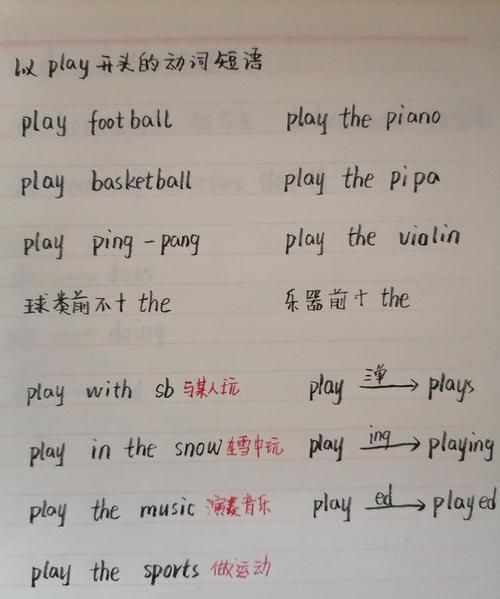 以 play 开头的动词短语
play football play the piano
play basketball play the pipa
play ping-pang play the violin
球类前不+ the 乐器前+ the
play with sb 与某人玩 play 三单→ plays
play in the snow 在雪中玩 play ing→ playing
play the music 演奏音乐 play ed→ played
play the sports 做运动